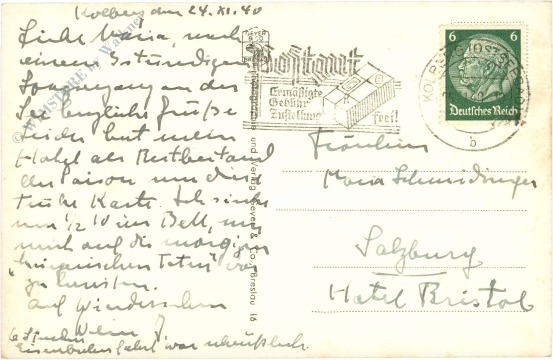 Kolberg den 24.XI.40
Liebe Maria, nach
einem 3stündigen
Spaziergang an der
See herzliche Grüße
leider hat mein
Hotel als Restbestand
der Saison nur diese
Karte. Ich sinke
um 1/2 10 ins Bett, um
mich auf die morgigen
zu
auf Wiedersehen
6 Stunden
Eisenbahnfahrt war scheußlich.
Postgut
Ermäßigte
Gebühr
Zustellung frei!
6 6
Deutsches Reich
KOLBERG OSTSEEBAD
b
Fräulein
Maria Schmidinger
Salzburg
Hotel Bristol
und Verlag Beyer & Co., Breslau 16